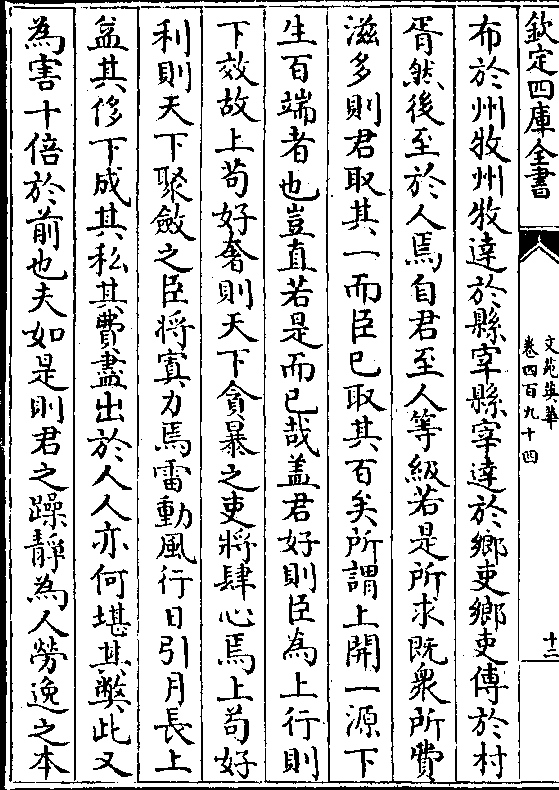 欽定四庫全書
文苑英華
卷四百九十四
十二
布於州牧州牧達於縣宰縣宰達於鄉吏鄉吏傳於村
胥然後至於人焉自君至人等級若是所求既衆所費
滋多則君取其一而臣已取其百矣所謂上開一源下
生百端者也豈直若是而已哉盖君好則臣為上行則
下效故上苟好奢則天下貪暴之吏將肆心焉上苟好
利則天下聚斂之臣將寘力焉雷動風行日引月長上
益其侈下成其私其費盡出於人人亦何堪其弊此又
為害十倍於前也夫如是則君之躁靜為人勞逸之本